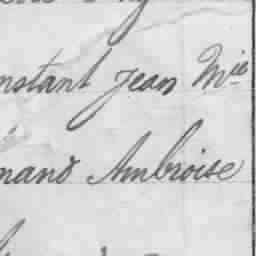 nstant Jean Mie
mand Ambroise